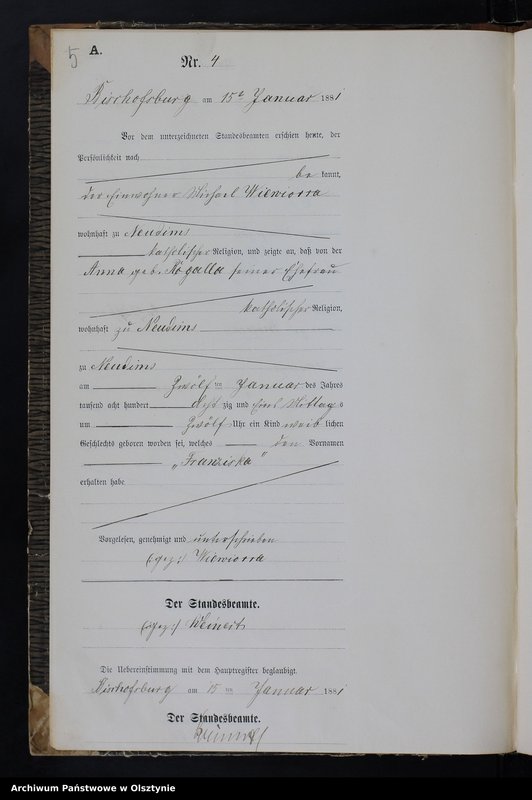 5
A.
Nr. 4
Bischofsburg am 15ten Januar 1881
Vor dem unterzeichneten Standesbeamten erschien heute, der
Persönlichkeit nach
be kannt,
der Einwohner Michael Wiewiorra
wohnhaft zu Neudims
katholischer Religion, und zeigte an, daß von der
Anna geb. Rogalla seiner Ehefrau
katholischer Religion,
wohnhaft zu Neudims
zu Neudims
am Zwölf ten Januar des Jahres
tausend acht hundert acht zig und eins Mittags
um Zwölf Uhr ein Kind weib lichen
Geschlechts geboren worden sei, welches den Vornamen
„Franziska"
erhalten habe
Vorgelesen, genehmigt und unterschrieben
(gez:) Wiewiorra
Der Standesbeamte.
(gez:)
Die Uebereinstimmung mit dem Hauptregister beglaubigt.
Bischofsburg am 15 ten Januar 1881
Der Standesbeamte.
Archiwum Państwowe w Olsztynie